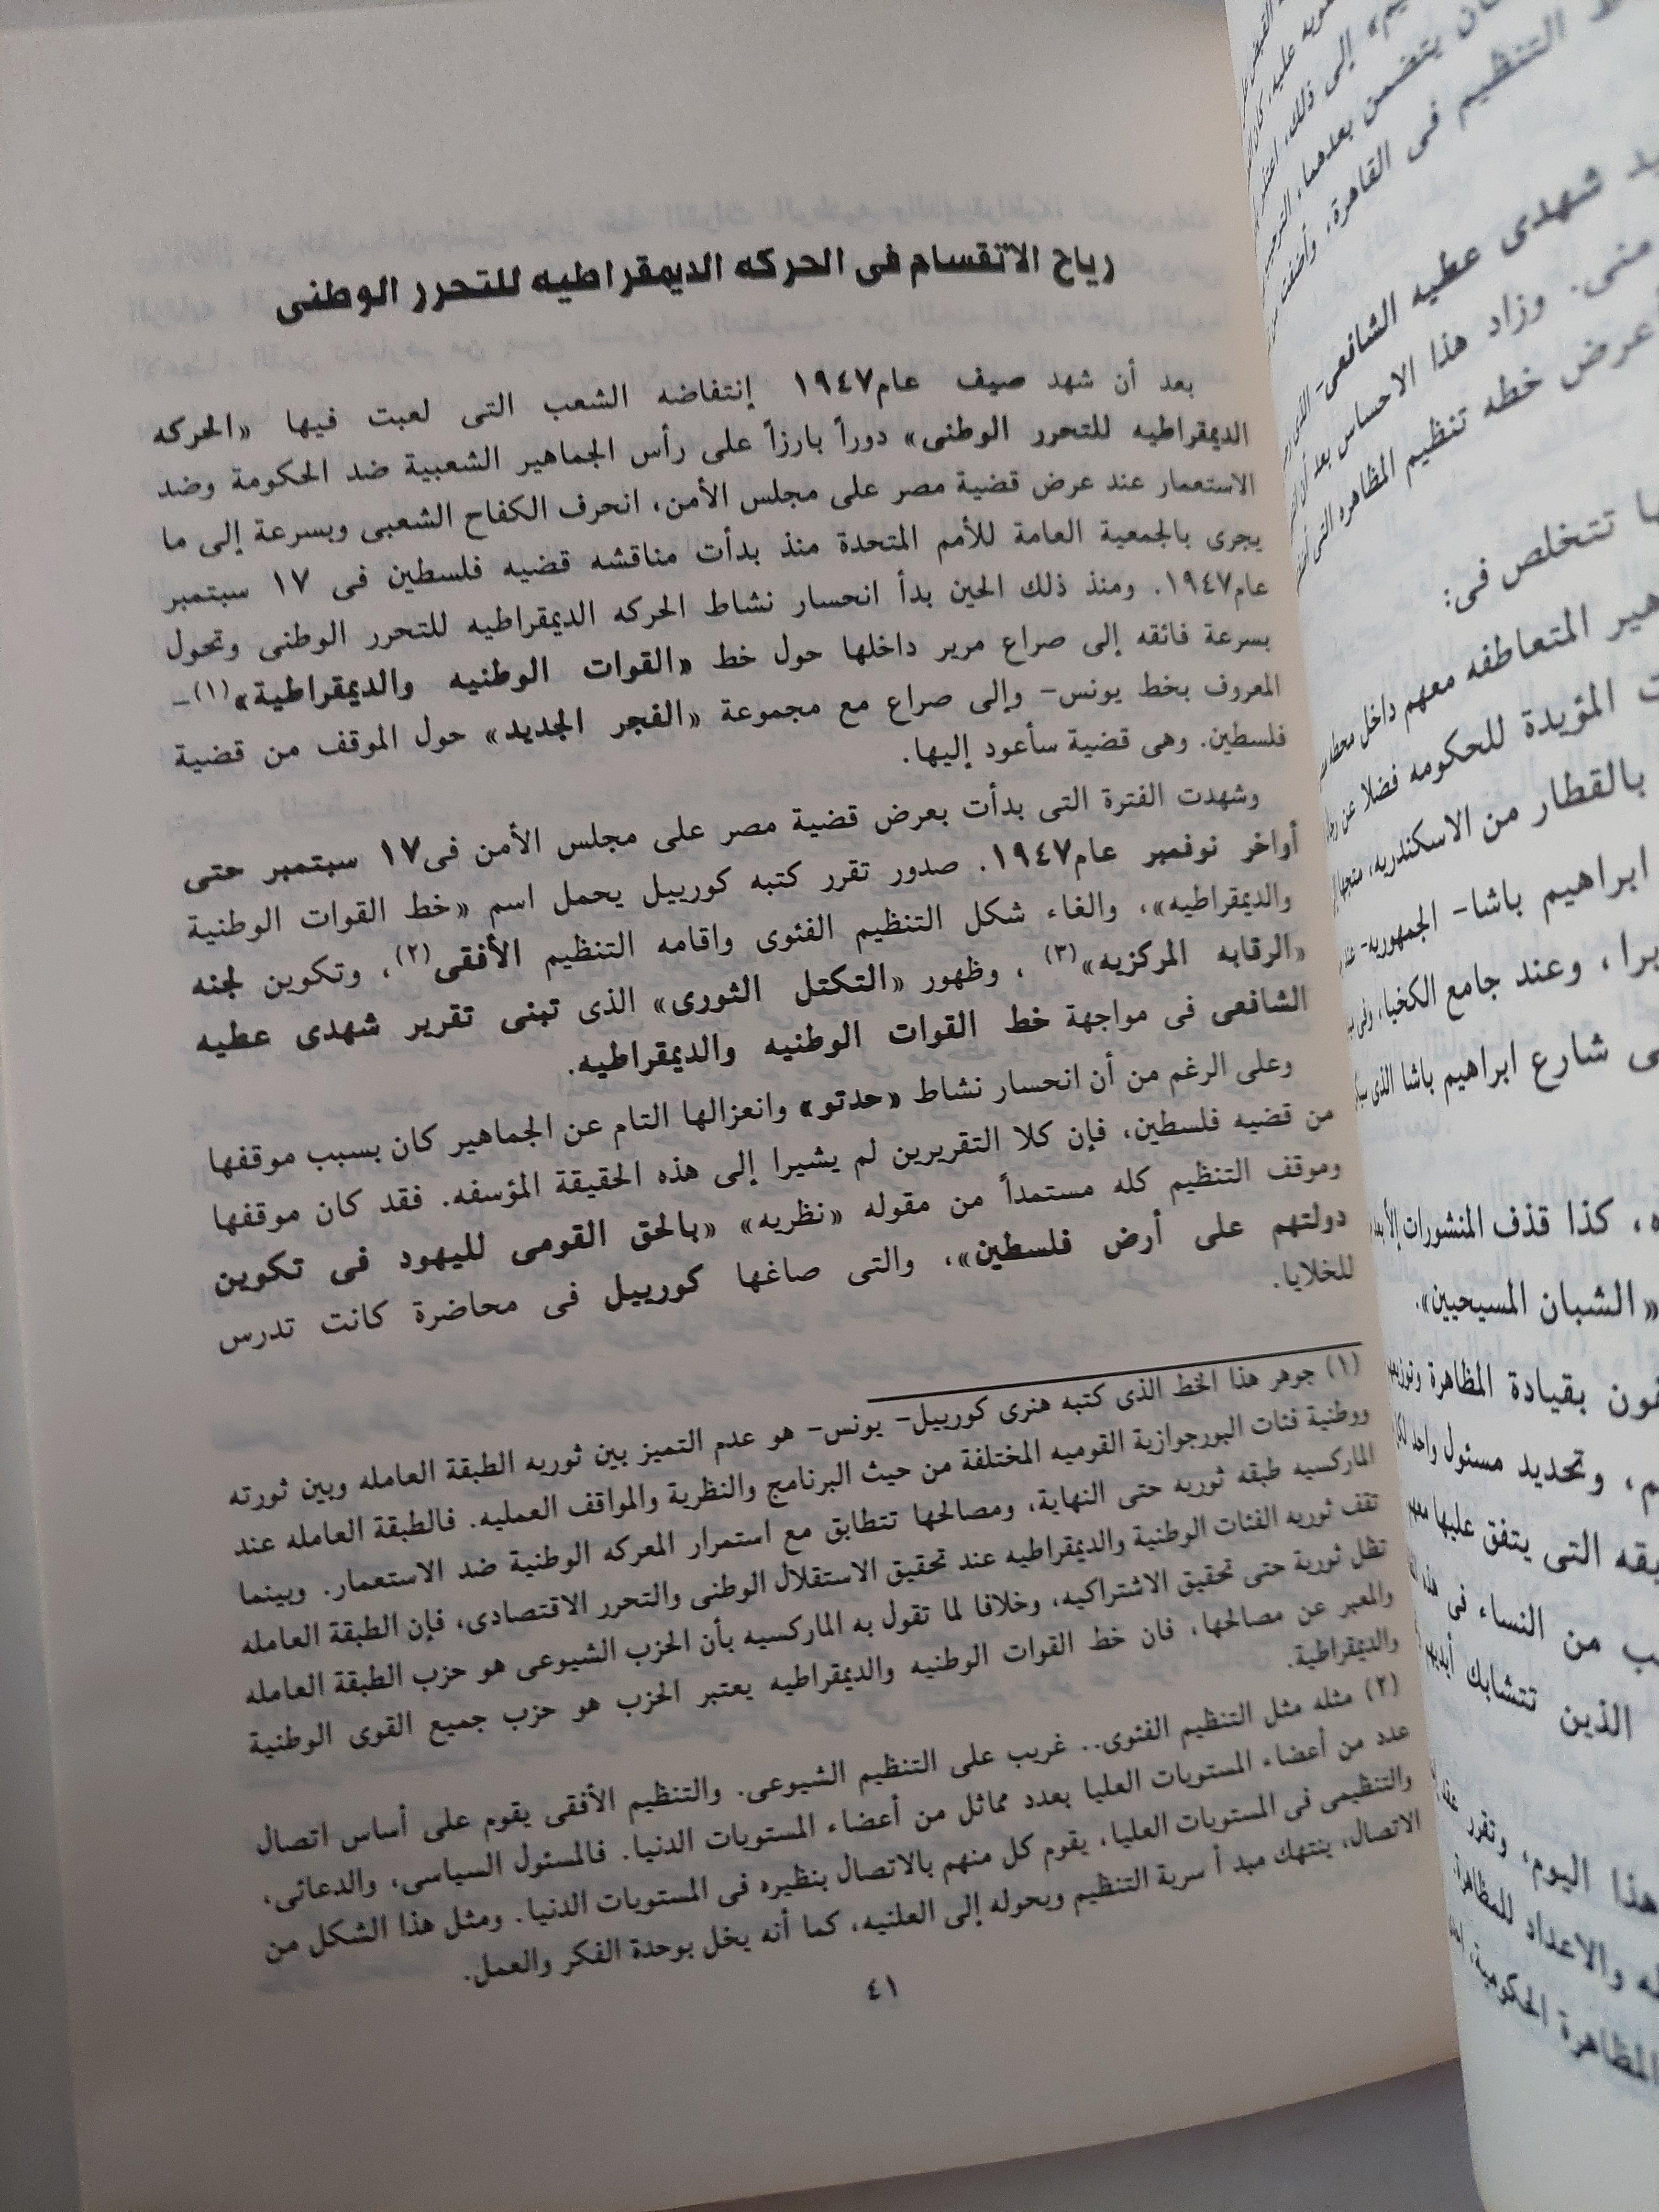 رياح الانقسام فى الحركه الديمقراطيه للتحرر الوطنى
بعد أن شهد صيف عام١٩٤٧ إنتفاضه الشعب التى لعبت فيها «الحركه
الديمقراطيه للتحرر الوطنى» دوراً بارزاً على رأس الجماهير الشعبية ضد الحكومة وضد
الاستعمار عند عرض قضية مصر على مجلس الأمن، انحرف الكفاح الشعبى وبسرعة إلى ما
يجرى بالجمعية العامة للأمم المتحدة منذ بدأت مناقشه قضيه فلسطين فى ١٧ سبتمبر
عام١٩٤٧. ومنذ ذلك الحين بدأ انحسار نشاط الحركه الديمقراطيه للتحرر الوطنى وتحول
بسرعة فائقه إلى صراع مرير داخلها حول خط «القوات الوطنيه والديمقراطية»(١)-
المعروف بخط يونس- وإلى صراع مع مجموعة «الفجر الجديد» حول الموقف من قضية
فلسطين. وهى قضية سأعود إليها.
وشهدت الفترة التى بدأت بعرض قضية مصر على مجلس الأمن فى١٧ سبتمبر حتى
أواخر نوفمبر عام١٩٤٧. صدور تقرر كتبه كورييل يحمل اسم «خط القوات الوطنية
والديمقراطيه»، والغاء شكل التنظيم الفئوى واقامه التنظيم الأفقى(٢)، وتكوين لجنه
«الرقابه المركزيه»(٣) ، وظهور «التكتل الثورى» الذى تبنى تقرير شهدى عطيه
الشافعى فى مواجهة خط القوات الوطنيه والديمقراطيه.
وعلى الرغم من أن انحسار نشاط «حدتو» وانعزالها التام عن الجماهير كان بسبب موقفها
من قضيه فلسطين، فإن كلا التقريرين لم يشيرا إلى هذه الحقيقة المؤسفه. فقد كان موقفها
وموقف التنظيم كله مستمداً من مقوله «نظريه» «بالحق القومى لليهود فى تكوين
دولتهم على أرض فلسطين»، والتى صاغها كورييل فى محاضرة كانت تدرس
للخلايا.
(١) جوهر هذا الخط الذى كتبه هنرى كورييل- يونس- هو عدم التميز بين ثوريه الطبقة العامله وبين ثورته
ووطنية فئات البورجوازية القوميه المختلفة من حيث البرنامج والنظرية والمواقف العمليه. فالطبقة العامله عند
الماركسيه طبقه ثوريه حتى النهاية، ومصالحها تتطابق مع استمرار المعركه الوطنية ضد الاستعمار. وبينما
تقف ثوريه الفئات الوطنية والديمقراطيه عند تحقيق الاستقلال الوطنى والتحرر الاقتصادى، فإن الطبقة العامله
تظل ثورية حتى تحقيق الاشتراكيه، وخلافا لما تقول به الماركسيه بأن الحزب الشيوعى هو حزب الطبقة العامله
والمعبر عن مصالحها، فان خط القوات الوطنيه والديمقراطيه يعتبر الحزب هو حزب جميع القوى الوطنية
والديمقراطية.
(٢) مثله مثل التنظيم الفئوى.. غريب على التنظيم الشيوعى. والتنظيم الأفقى يقوم على أساس اتصال
عدد من أعضاء المستويات العليا بعدد مماثل من أعضاء المستويات الدنيا. فالمسئول السياسى، والدعائى،
والتنظيمى فى المستويات العليا، يقوم كل منهم بالاتصال بنظيره فى المستويات الدنيا. ومثل هذا الشكل من
الاتصال، ينتهك مبد أ سرية التنظيم ويحوله إلى العلنيه، كما أنه يخل بوحدة الفكر والعمل.
٤١
إلى ذلك،
يتضمن بعدهما،
التنظيم فى القاهرة،
شهدى عطيه الشافعى-
منى. وزاد هذا الاحساس بعد أن
عرض خطه تنظيم المظاهره التى
تتخلص فى:
المتعاطفه معهم داخل
المؤيدة للحكومه فضلا عن
بالقطار من الاسكندريه،
ابراهيم باشا- الجمهوريه-
، وعند جامع الكخيا،
شارع ابراهيم باشا الذى
، كذا قذف المنشورات
«الشبان المسيحيين».
بقيادة المظاهرة
، وتحديد مسئول واحد
التى يتفق عليها
من النساء فى
الذين تتشابك أيديهم
هذا اليوم، وتقرر
والاعداد للمظاهرة
المظاهرة الحكومية،